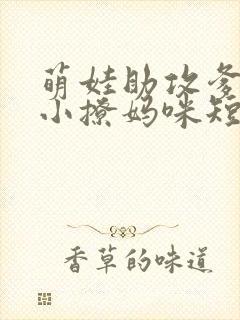 萌娃助攻爹
小撩妈咪短
香草的味道